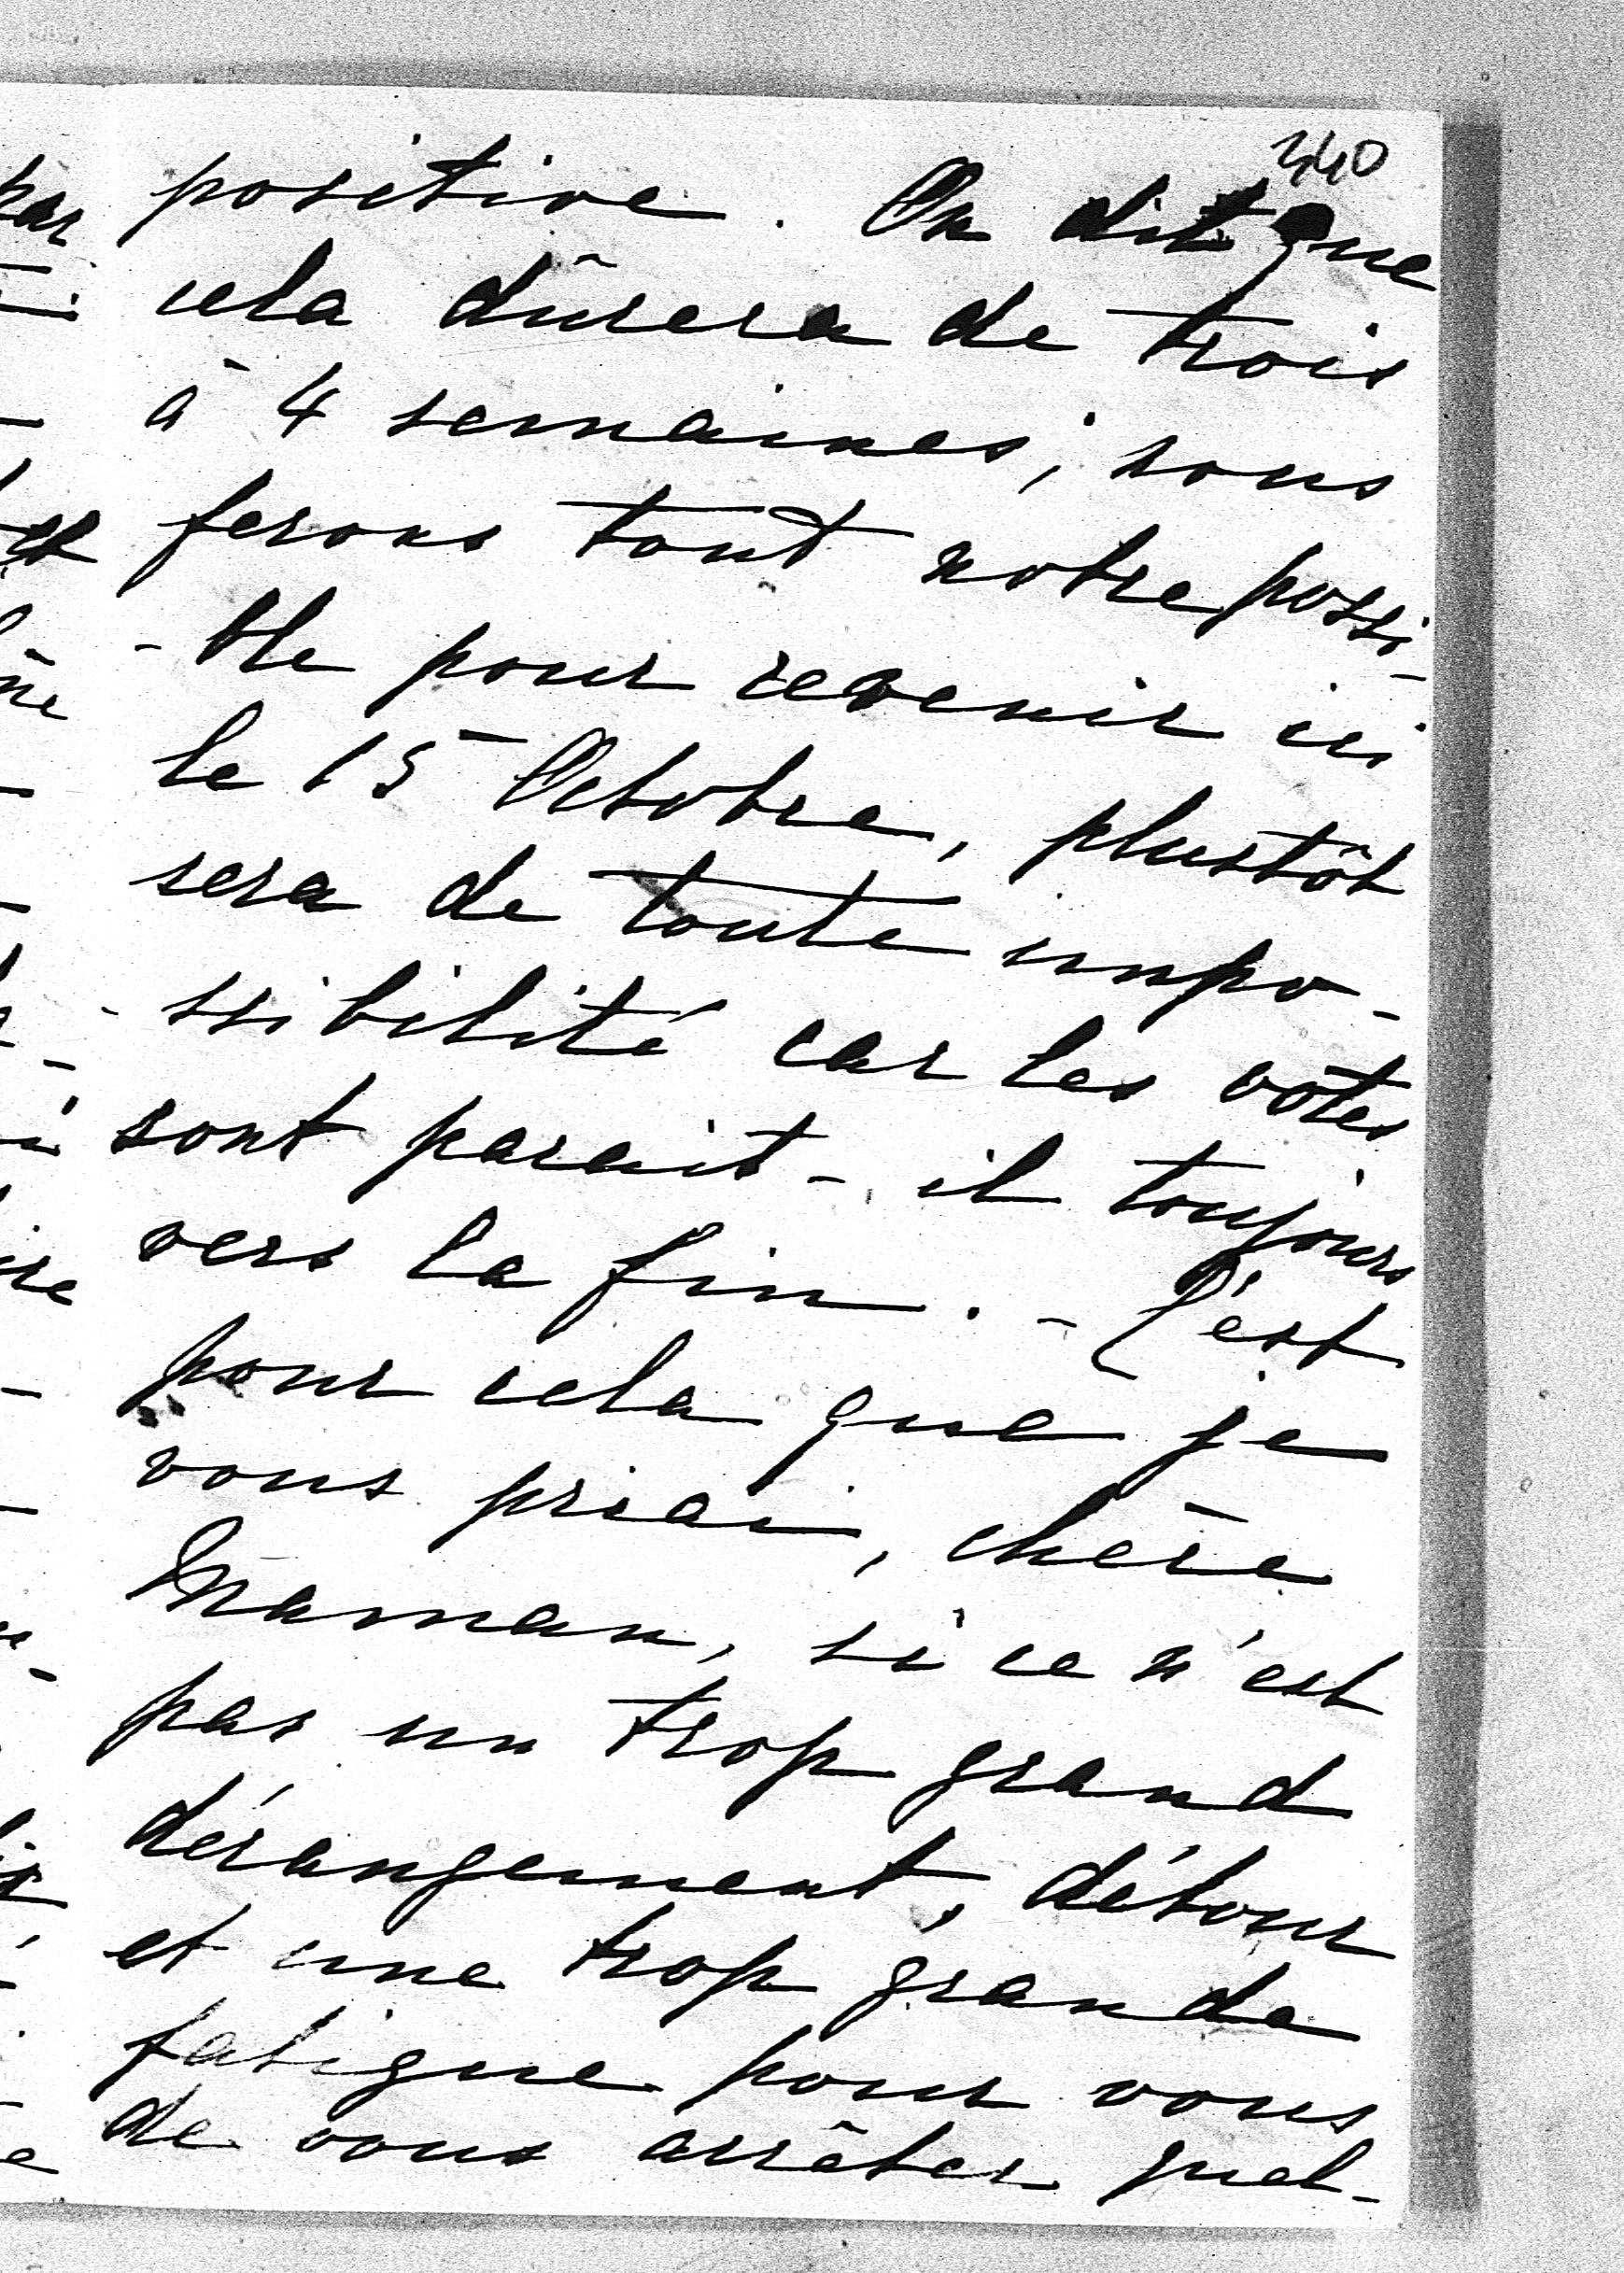 340
positive. On dit que
cela dûrera de trois
à 4 semaines; nous
ferons tout notre possi-
-ble pour revenir ici
le 15 Octobre, plustôt
sera de toute impo-
-ssibilité car les votes
sont parait-il toujours
vers la fin. - C'est
pour cela que je
vous priai, chère
Maman, si ce n'est
pas un trop grand
dérangement, détour
et une trop grande
fatigue pour vous
de vous arrêter quel-